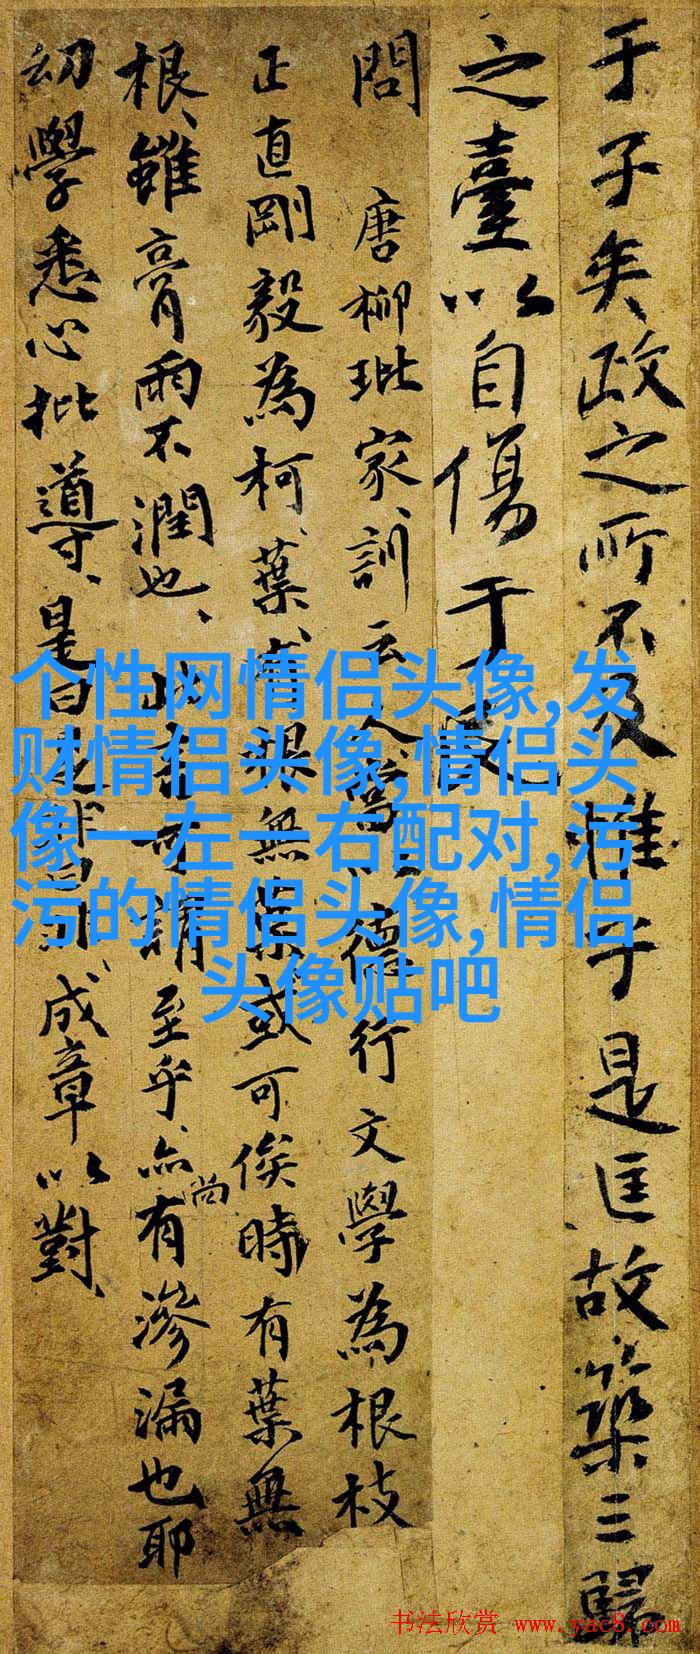 于子矣政之所不及惟于是匡故築三歸
之臺以自傷于
問 唐柳玭家訓云人當以德行文學為根枝
正直剛毅為柯葉有根無葉或可俟時有葉無
根雖膏雨不潤也至乎亦尚有滲漏也耶
幼學悉心批導是曰是非曰非成章以對
个性网情侣头像,发
财情侣头像,情侣头
像一左一右配对,污
污的情侣头像,情侣
头像贴吧
书法欣赏 www.yac8.com